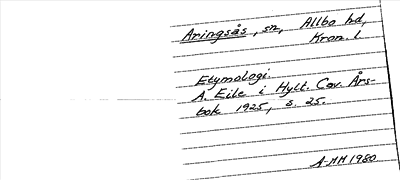 Aringsås, sn, Allbo hd,
Kron. l
Etymologi.
A. Eile i Hylt. Cav. Års-
bok 1925, s. 25.
A-MH 1980